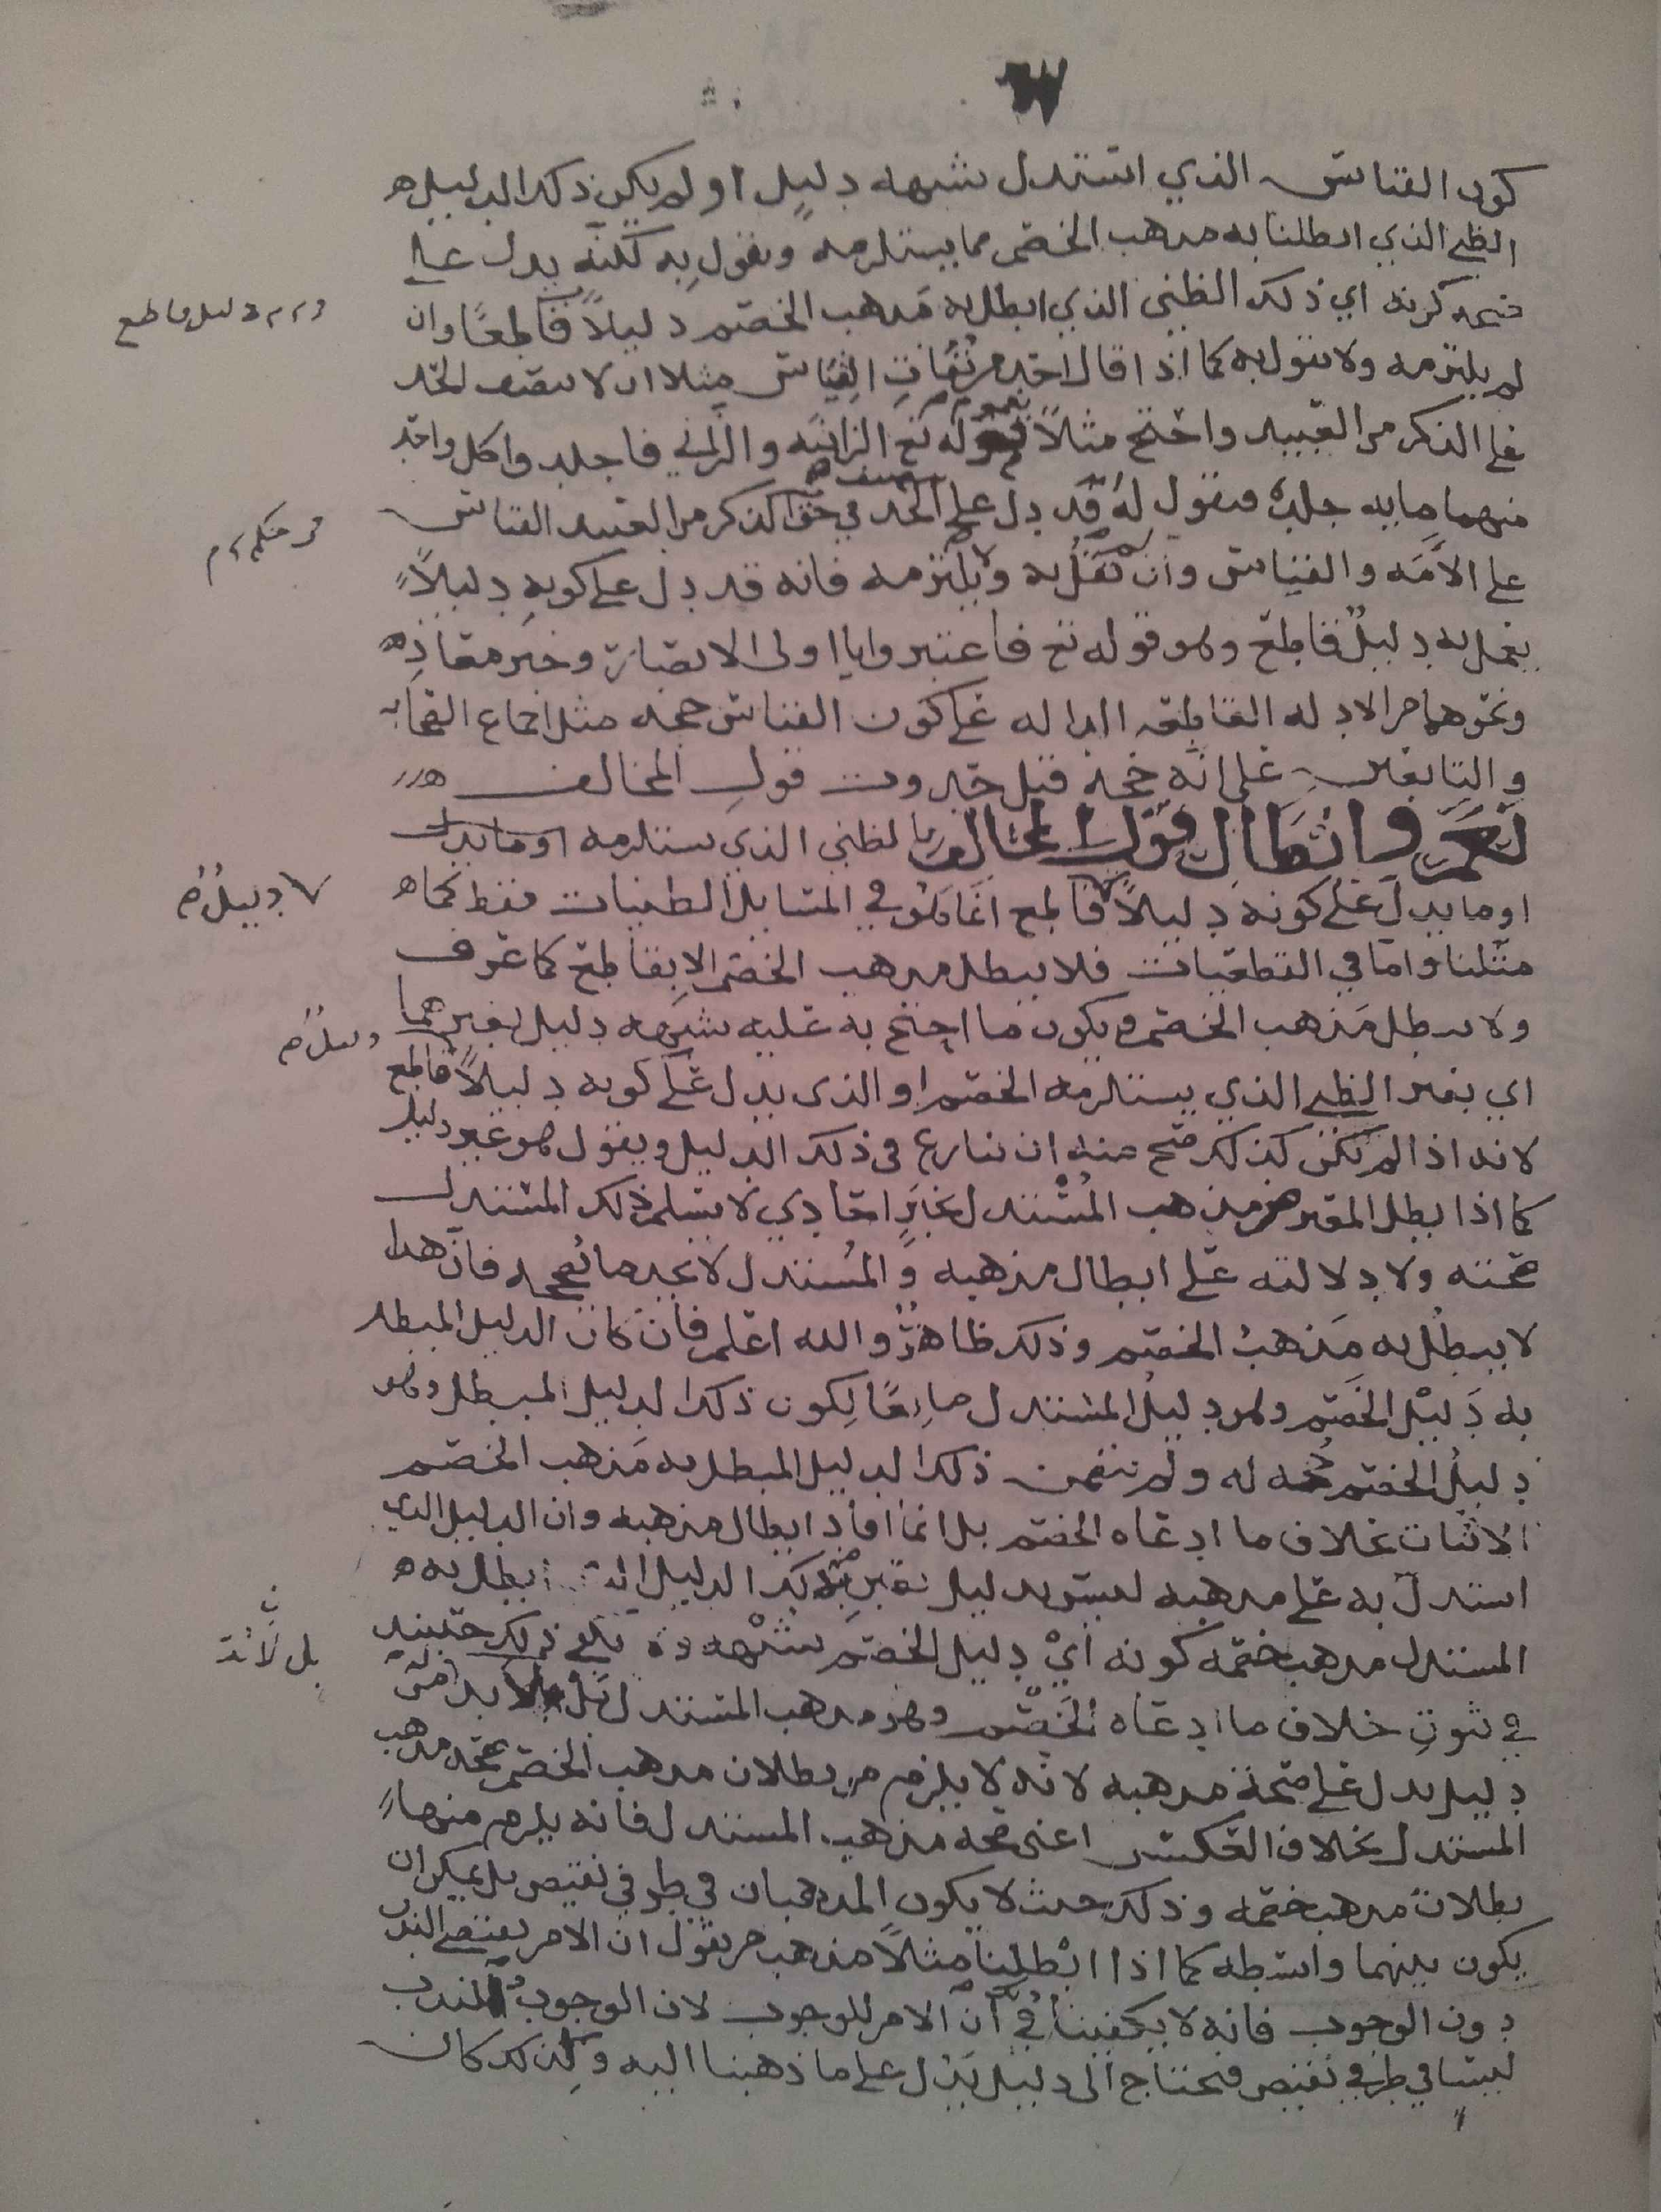 ٦٧
كون القياس الذي استدل شبهه دليل او لم يكن ذلك الدليل
الظني الذي ابطلنا به مذهب الخصم مما يستلزمه ويقول به لكنه يدل على
صحه كونه اي ذلك الظني الذي ابطل به مذهب الخصم دليلاً قاطعًا وان
لم يلتزمه ولا يقول به كما اذا قال احد من نفاة القياس مثلا ان لا ينصف الحد
على الذكر من العبيد واحتج مثلاً بعموم قوله تع الزانيه والزاني فاجلدوا كل واحد
منهما مايه جلدة فيقول له قد دل على تنصيف الحد في حق الذكر من العبيد القياس
على الأمَه والقياس وان لم تقُل به ولا يلتزمه فانه قد دل على كونه دليلاً
يعمل به دليلٌ قاطع وهو قوله تع فاعتبروا يا اولى الابصار وخبر معاذ
ونحوهما من الادله القاطعه الداله على كون القياس حجه مثل اجماع الصحابه
والتابعين على انه حجة قبل حدوث قول المخالف
نعم وابطال قول المخالف بالظني الذي يستلزمه او ما يدل
او ما يدل على كونه دليلاً قاطع انما هو في المسايل الظنيات فقط كما
مثلنا واما في القطعيات فلا يبطل مذهب الخصم الا بقاطع كما عرف
ولا يبطل مذهب الخصم ويكون ما احتج به عليه شبهه دليل بغيرهما
اي بغير الظني الذي يستلزمه الخصم او الذي يدل على كونه دليلاً قاطع
لانه اذا لم يكن كذلك صح منه ان ينازع في ذلك الدليل ويقول هو غير دليل
كما اذا بطل المعترض مذهب المُستدل بخبرٍ احادي لا يسلم ذلك المستدل
صحته ولا دلالته على ابطال مذهبه والمُستدل لا يجد ما يصححه فان هذا
لا يبطُل به مَذهبُ الخصم وذلك ظاهرٌ والله اعلم فان كان الدليل المبطل
به دَليْل الخَصم وهو دليلُ المستدل مانِعًا لِكون ذلك الدليل المبطل وهو
دليلُ الخصم حجه له ولم يتضمن ذلك الدليل المبطل به مَذهب الخصم
الاثبات بخلاف ما ادعاه الخصم بل انما افاد ابطال مذهبه وان الدليل الذي
استدل به على مذهبه ليس بدليل
المستدل مذهب خصمه كونه ايْ دليل الخصم شُبْهه
في ثبوتِ خلاف ما ادعاه الخَصْم وهو مذهب المستدل بل لا بد من
دليل يدل على صحة مذهبه لانه لا يلزم من بطلان مذهب الخصم صحه مذهب
المستدل بخلاف العكس اعنى صحه مذهب المستدل فانه يلزم منها
بطلان مذهب خصمه وذلك حيث لا يكون المذهبان في طرفي نقيض بل يمكن ان
يكون بينهما واسطه كما اذا ابْطلنا مثلاً مذهب من يقول ان الامر يقتضي الندب
دون الوجوب فانه لا يكفينا في أن الامر للوجوب لان الوجوب والندب
ليسا في طرفي نقيض فنحتاج الى دليل يدل على ما ذهبنا اليه ولذلك كان
دليل قاطع
دليلٌ
بل لأنه